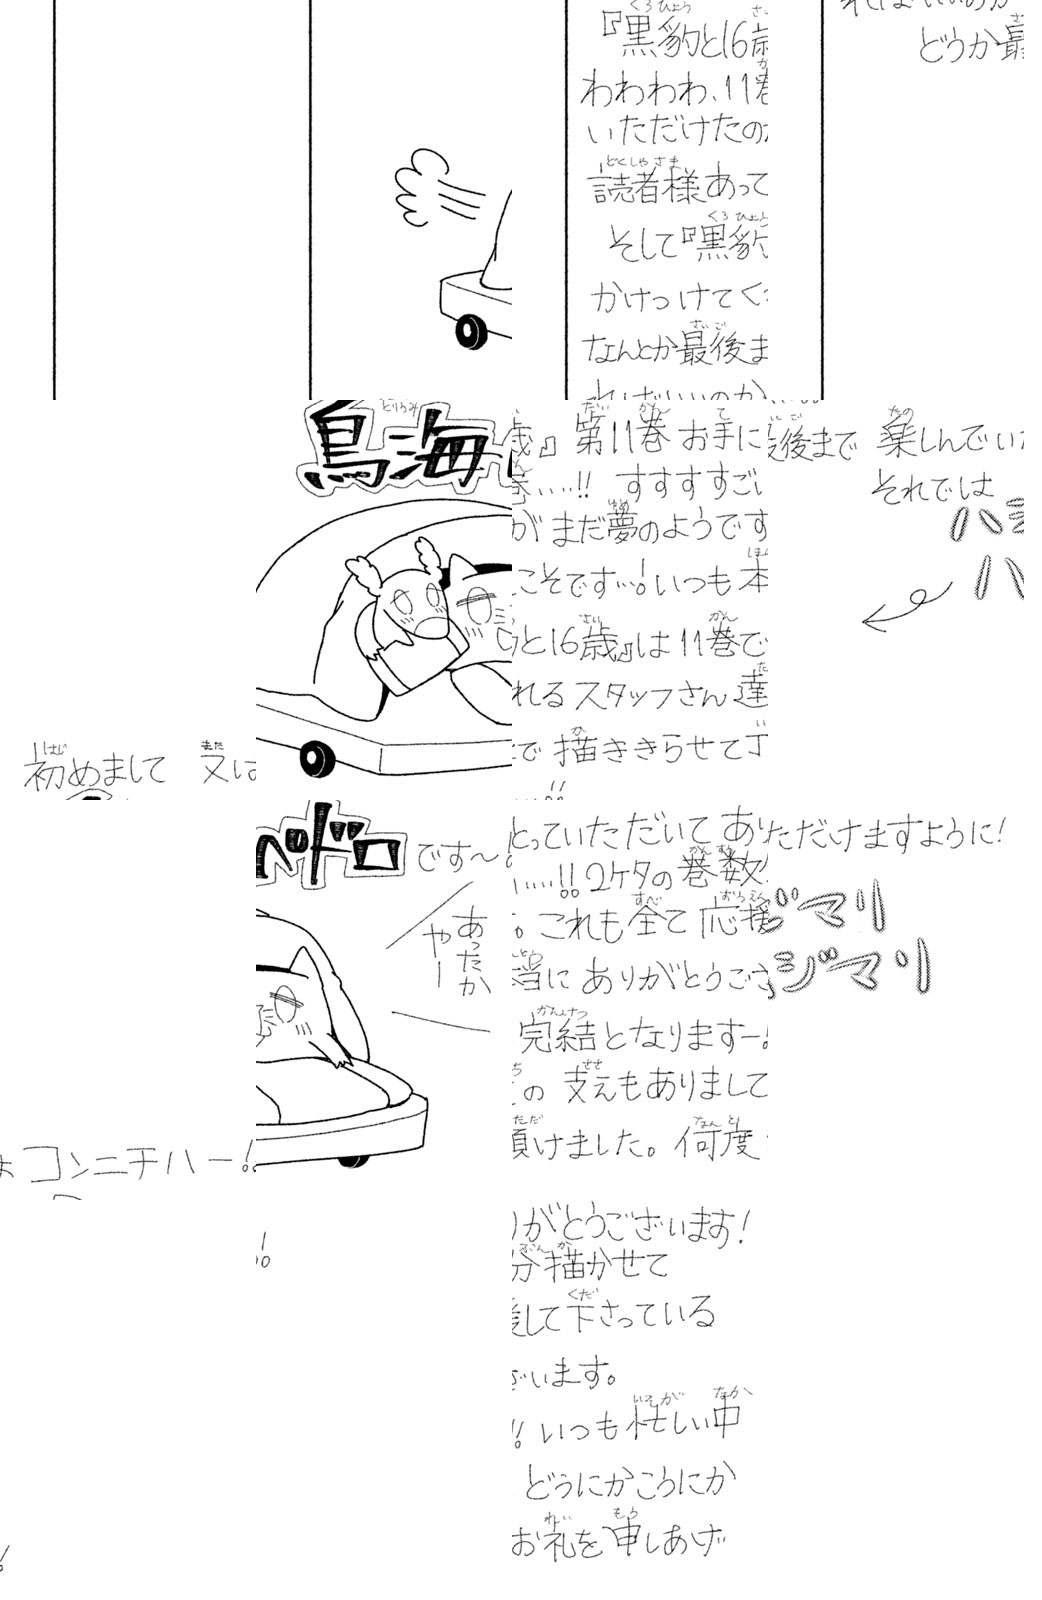 『黒豹と16歳
わわわわ、11巻
いただけたのが
読者様あって
そして『黒豹
かけつけてく
なんとか最後ま
ればいいのか
どうか最
鳥海
初めまして 又は
』第11巻 お手に
……!! すすすすごい
が まだ夢のようです
こそです…!いつも本
と16歳』は11巻で
れるスタッフさん達
で 描ききらせて丁
後まで 楽しんでいた
それでは
ハ
ハ
ペドロです〜。
あったか
やー
コンニチハー!
とっていただいて あり
……!!2ケタの巻数
。これも全て 応援
当に ありがとうござ
完結となりますー!
の 支えもありまして
頂けました。何度
ただけますように!
ジマリ
ジマリ
がとうございます!
分描かせて
して下さっている
います。
!! いつも忙しい中
どうにかこうにか
お礼を申しあげ